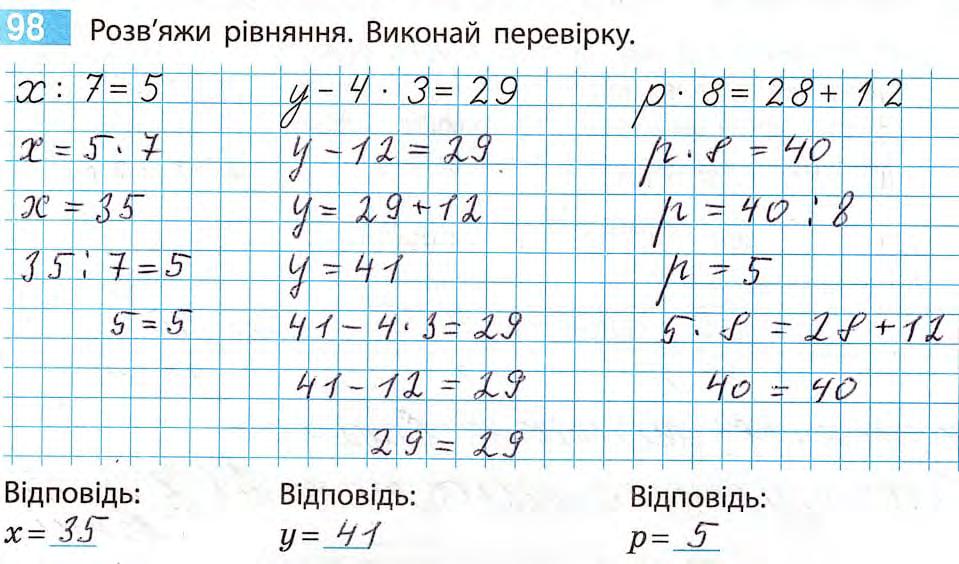 98 Розв'яжи рівняння. Виконай перевірку.
x : 7 = 5
x = 5 · 7
x = 35
35 : 7 = 5
5 = 5
y - 4 · 3 = 29
y - 12 = 29
y = 29 + 12
y = 41
41 - 4 · 3 = 29
41 - 12 = 29
29 = 29
p · 8 = 28 + 12
p · 8 = 40
p = 40 : 8
p = 5
5 · 8 = 28 + 12
40 = 40
Відповідь:
x = 35
Відповідь:
y = 41
Відповідь:
p = 5